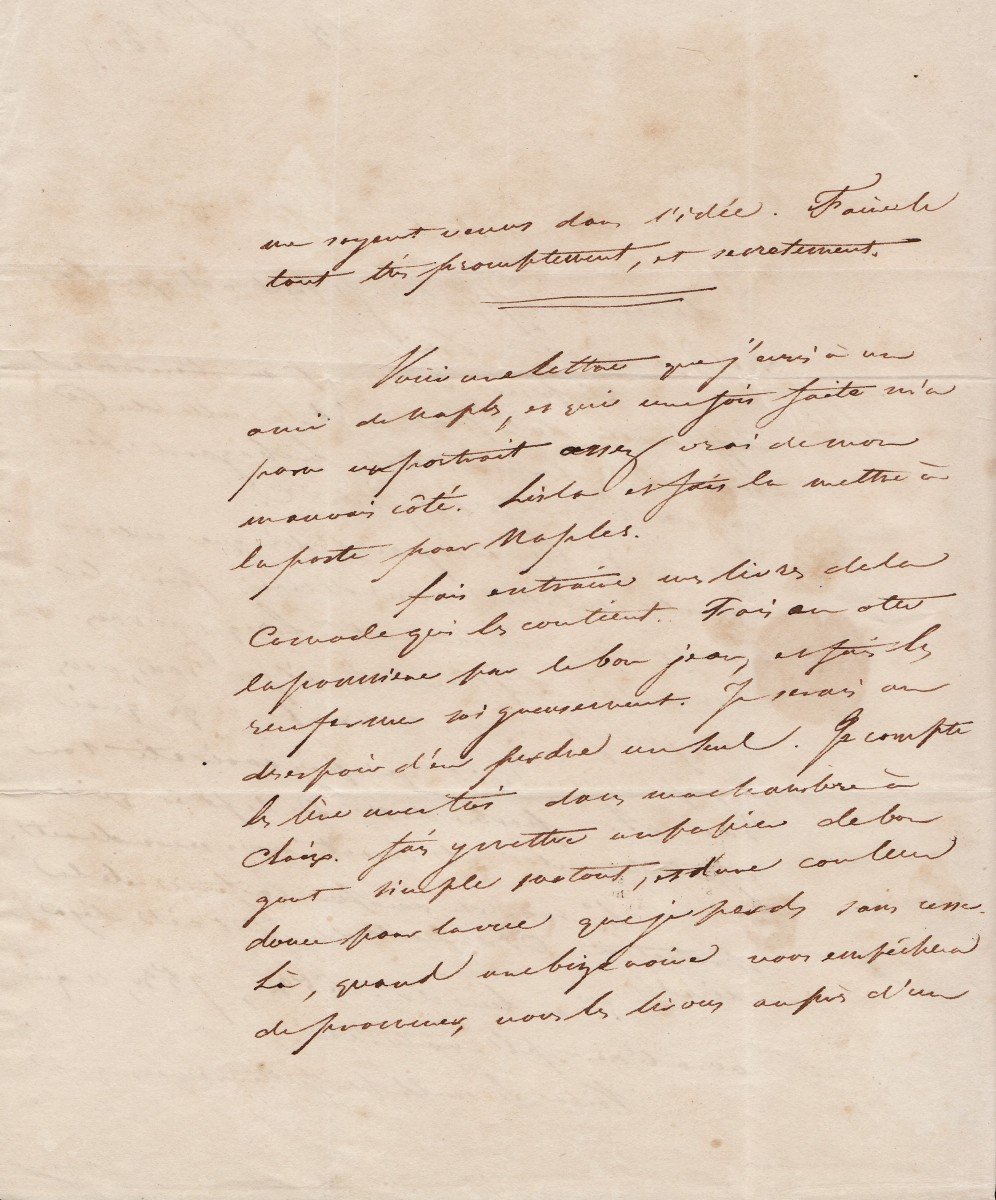 me soyent venus dans l'idée. Faire le
tout très promptement, et secretement.
Voici une lettre que j'ecris à un
ami de Naples, et qui une fois faite m'a
paru un portrait assez vrai de mon
mauvais côté. Lis la et fais la mettre à
la poste pour Naples.
fais mes livres de la
Comode qui les contient. Fais en oter
la poussiere par le bon jean, et fais les
renfermer soigneusement. Je serais au
desespoir d'en perdre un seul. Je compte
les lire avec toi dans ma chambre à
Claix. fais y mettre un papier de bon
gout simple surtout, et d'une couleur
douce pour la vue que je perds sans cesse.
Là, quand une bize noire nous empêchera
de promener, nous les lirons auprès d'un